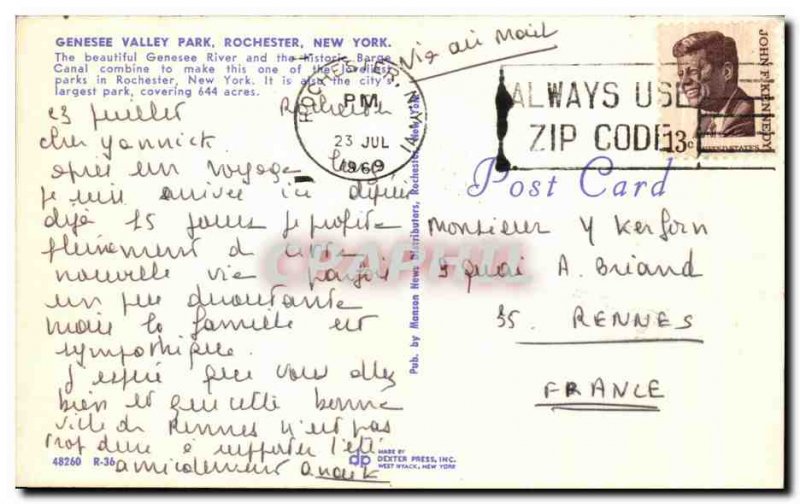 GENESEE VALLEY PARK, ROCHESTER, NEW YORK.
The beautiful Genesee River and the historic Barge
Canal combine to make this one of the loveliest
parks in Rochester, New York. It is also the city's
largest park, covering 644 acres.
Via air Mail
ROCHESTER, N.Y.
PM
23 JUL
1969
ALWAYS USE
ZIP CODE
JOHN F. KENNEDY
13c
UNITED STATES
Post Card
23 juillet Rochester
cher yannick
après un voyage
je suis arrivée ici depuis
déjà 15 jours je profite
pleinement d une
nouvelle vie parfois
un peu déroutante
mais la famille est
sympathique.
J espère que vous allez
bien et que cette bonne
ville de Rennes n'est pas
trop dure à supporter l'été
amicalement anouk
Pub. by Manson News Distributors, Rochester, New York
Monsieur Y Kerforn
9 quai A. Briand
35. RENNES
FRANCE
48260 R-36
dp
MADE BY
DEXTER PRESS, INC.
WEST NYACK, NEW YORK
CPAPHIL